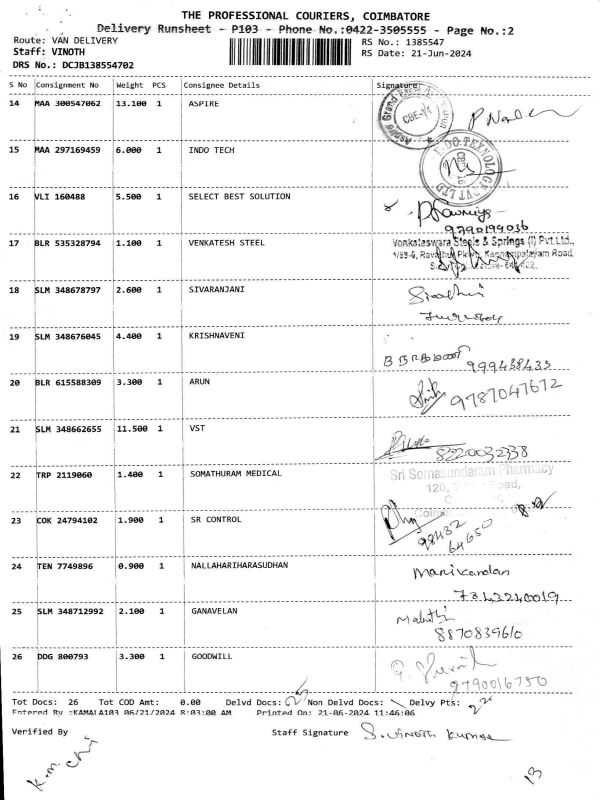 THE PROFESSIONAL COURIERS, COIMBATORE
Delivery Runsheet - P103 - Phone No.:0422-3505555 - Page No.:2
Route: VAN DELIVERY RS No.: 1385547
Staff: VINOTH RS Date: 21-Jun-2024
DRS No.: DCJB138554702
S No Consignment No Weight PCS Consignee Details Signature
14 MAA 300547062 13.100 1 ASPIRE
CBE-14
15 MAA 297169459 6.000 1 INDO TECH
16 VLI 160488 5.500 1 SELECT BEST SOLUTION
9790199036
17 BLR 535328794 1.100 1 VENKATESH STEEL Venkateswara Steels & Springs (I) Pvt.Ltd.,
Road,
18 SLM 348678797 2.600 1 SIVARANJANI
19 SLM 348676045 4.400 1 KRISHNAVENI
999438433
20 BLR 615588309 3.300 1 ARUN
9787047672
21 SLM 348662655 11.500 1 VST
8220032338
22 TRP 2119060 1.400 1 SOMATHURAM MEDICAL Sri Somasundaram Pharmacy
120, Road,
23 COK 24794102 1.900 1 SR CONTROL
98432
64650
24 TEN 7749896 0.900 1 NALLAHARIHARASUDHAN Manikandan
7343240019
25 SLM 348712992 2.100 1 GANAVELAN Malathi
8870839610
26 DDG 800793 3.300 1 GOODWILL
9790016750
Tot Docs: 26 Tot COD Amt: 0.00 Delvd Docs: 25 Non Delvd Docs: Delvy Pts:
Entered By :KAMALA103 06/21/2024 8:03:00 AM Printed On: 21-06-2024 11:46:06
Verified By Staff Signature S. Vinoth Kumar
13